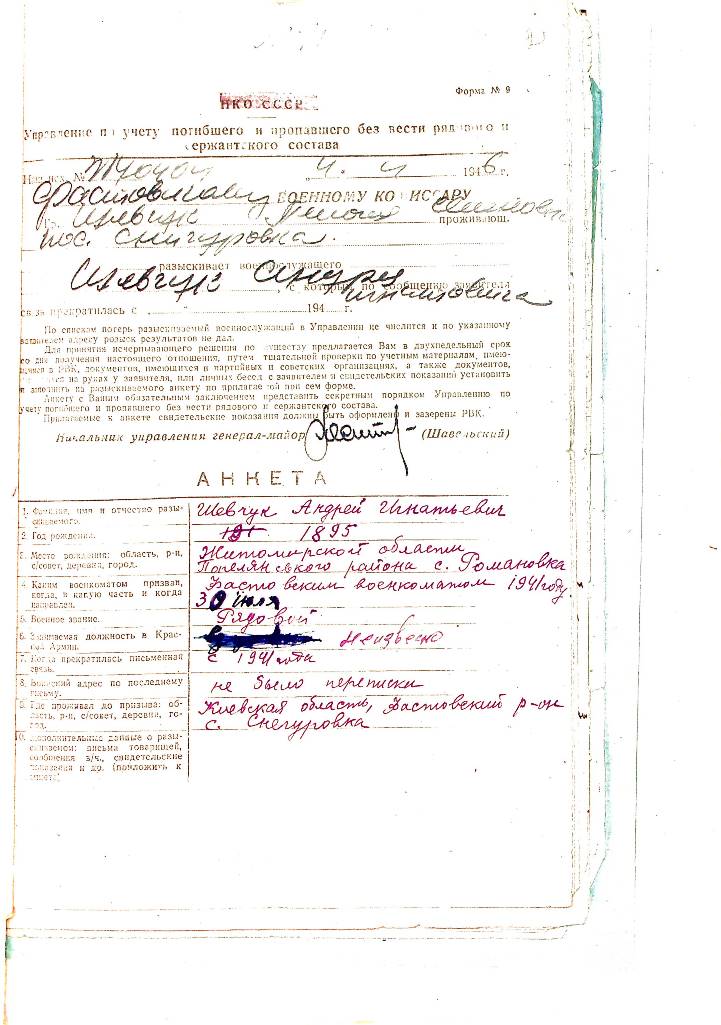 Форма № 9
НКО СССР
Управление по учету погибшего и пропавшего без вести рядового и
сержантского состава
Наш исх. № 4 . 4 194 6 г.
Фастовскому ВОЕННОМУ КОМИССАРУ
Шевчук проживающ.
пос. Снигуровка.
разыскивает военнослужащего
Шевчук Андрея Игнатьевича с которым по сообщению заявителя
связь прекратилась с 194 г.
По спискам потерь разыскиваемый военнослужащий в Управлении не числится и по указанному
заявителем адресу розыск результатов не дал.
Для принятия исчерпывающего решения по существу предлагается Вам в двухнедельный срок
со дня получения настоящего отношения, путем тщательной проверки по учетным материалам, имею-
щимся в РВК, документов, имеющихся в партийных и советских организациях, а также документов,
на руках у заявителя, или личных бесед с заявителем и свидетельских показаний установить
и заполнить на разыскиваемого анкету по прилагаемой при сем форме.
Анкету с Вашим обязательным заключением представить секретным порядком Управлению по
учету погибшего и пропавшего без вести рядового и сержантского состава.
Прилагаемые к анкете свидетельские показания должны быть оформлены и заверены РВК.
Начальник управления генерал-майор (Шавельский)
АНКЕТА
1. Фамилия, имя и отчество разы-
скиваемого. Шевчук Андрей Игнатьевич
2. Год рождения. 1895
3. Место рождения: область, р-н,
с/совет, деревня, город. Житомирской области
Попелянського района с. Романовка
4. Каким военкоматом призван,
когда, в какую часть и когда
направлен. Фастовским военкоматом 1941 году.
30 июля
5. Военное звание. Рядовой
6. Занимаемая должность в Крас-
ной Армии. Неизвесно
7. Когда прекратилась письменная
связь. с 1941 года
8. Воинский адрес по последнему
письму. не было переписки
9. Где проживал до призыва: об-
ласть, р-н, с/совет, деревня, го-
род. Киевская область, Фастовский р-он
с. Снегуровка
10. Дополнительные данные о разы-
скиваемом: письма товарищей,
сообщения в/ч., свидетельские
показания и др. (приложить к
анкете)